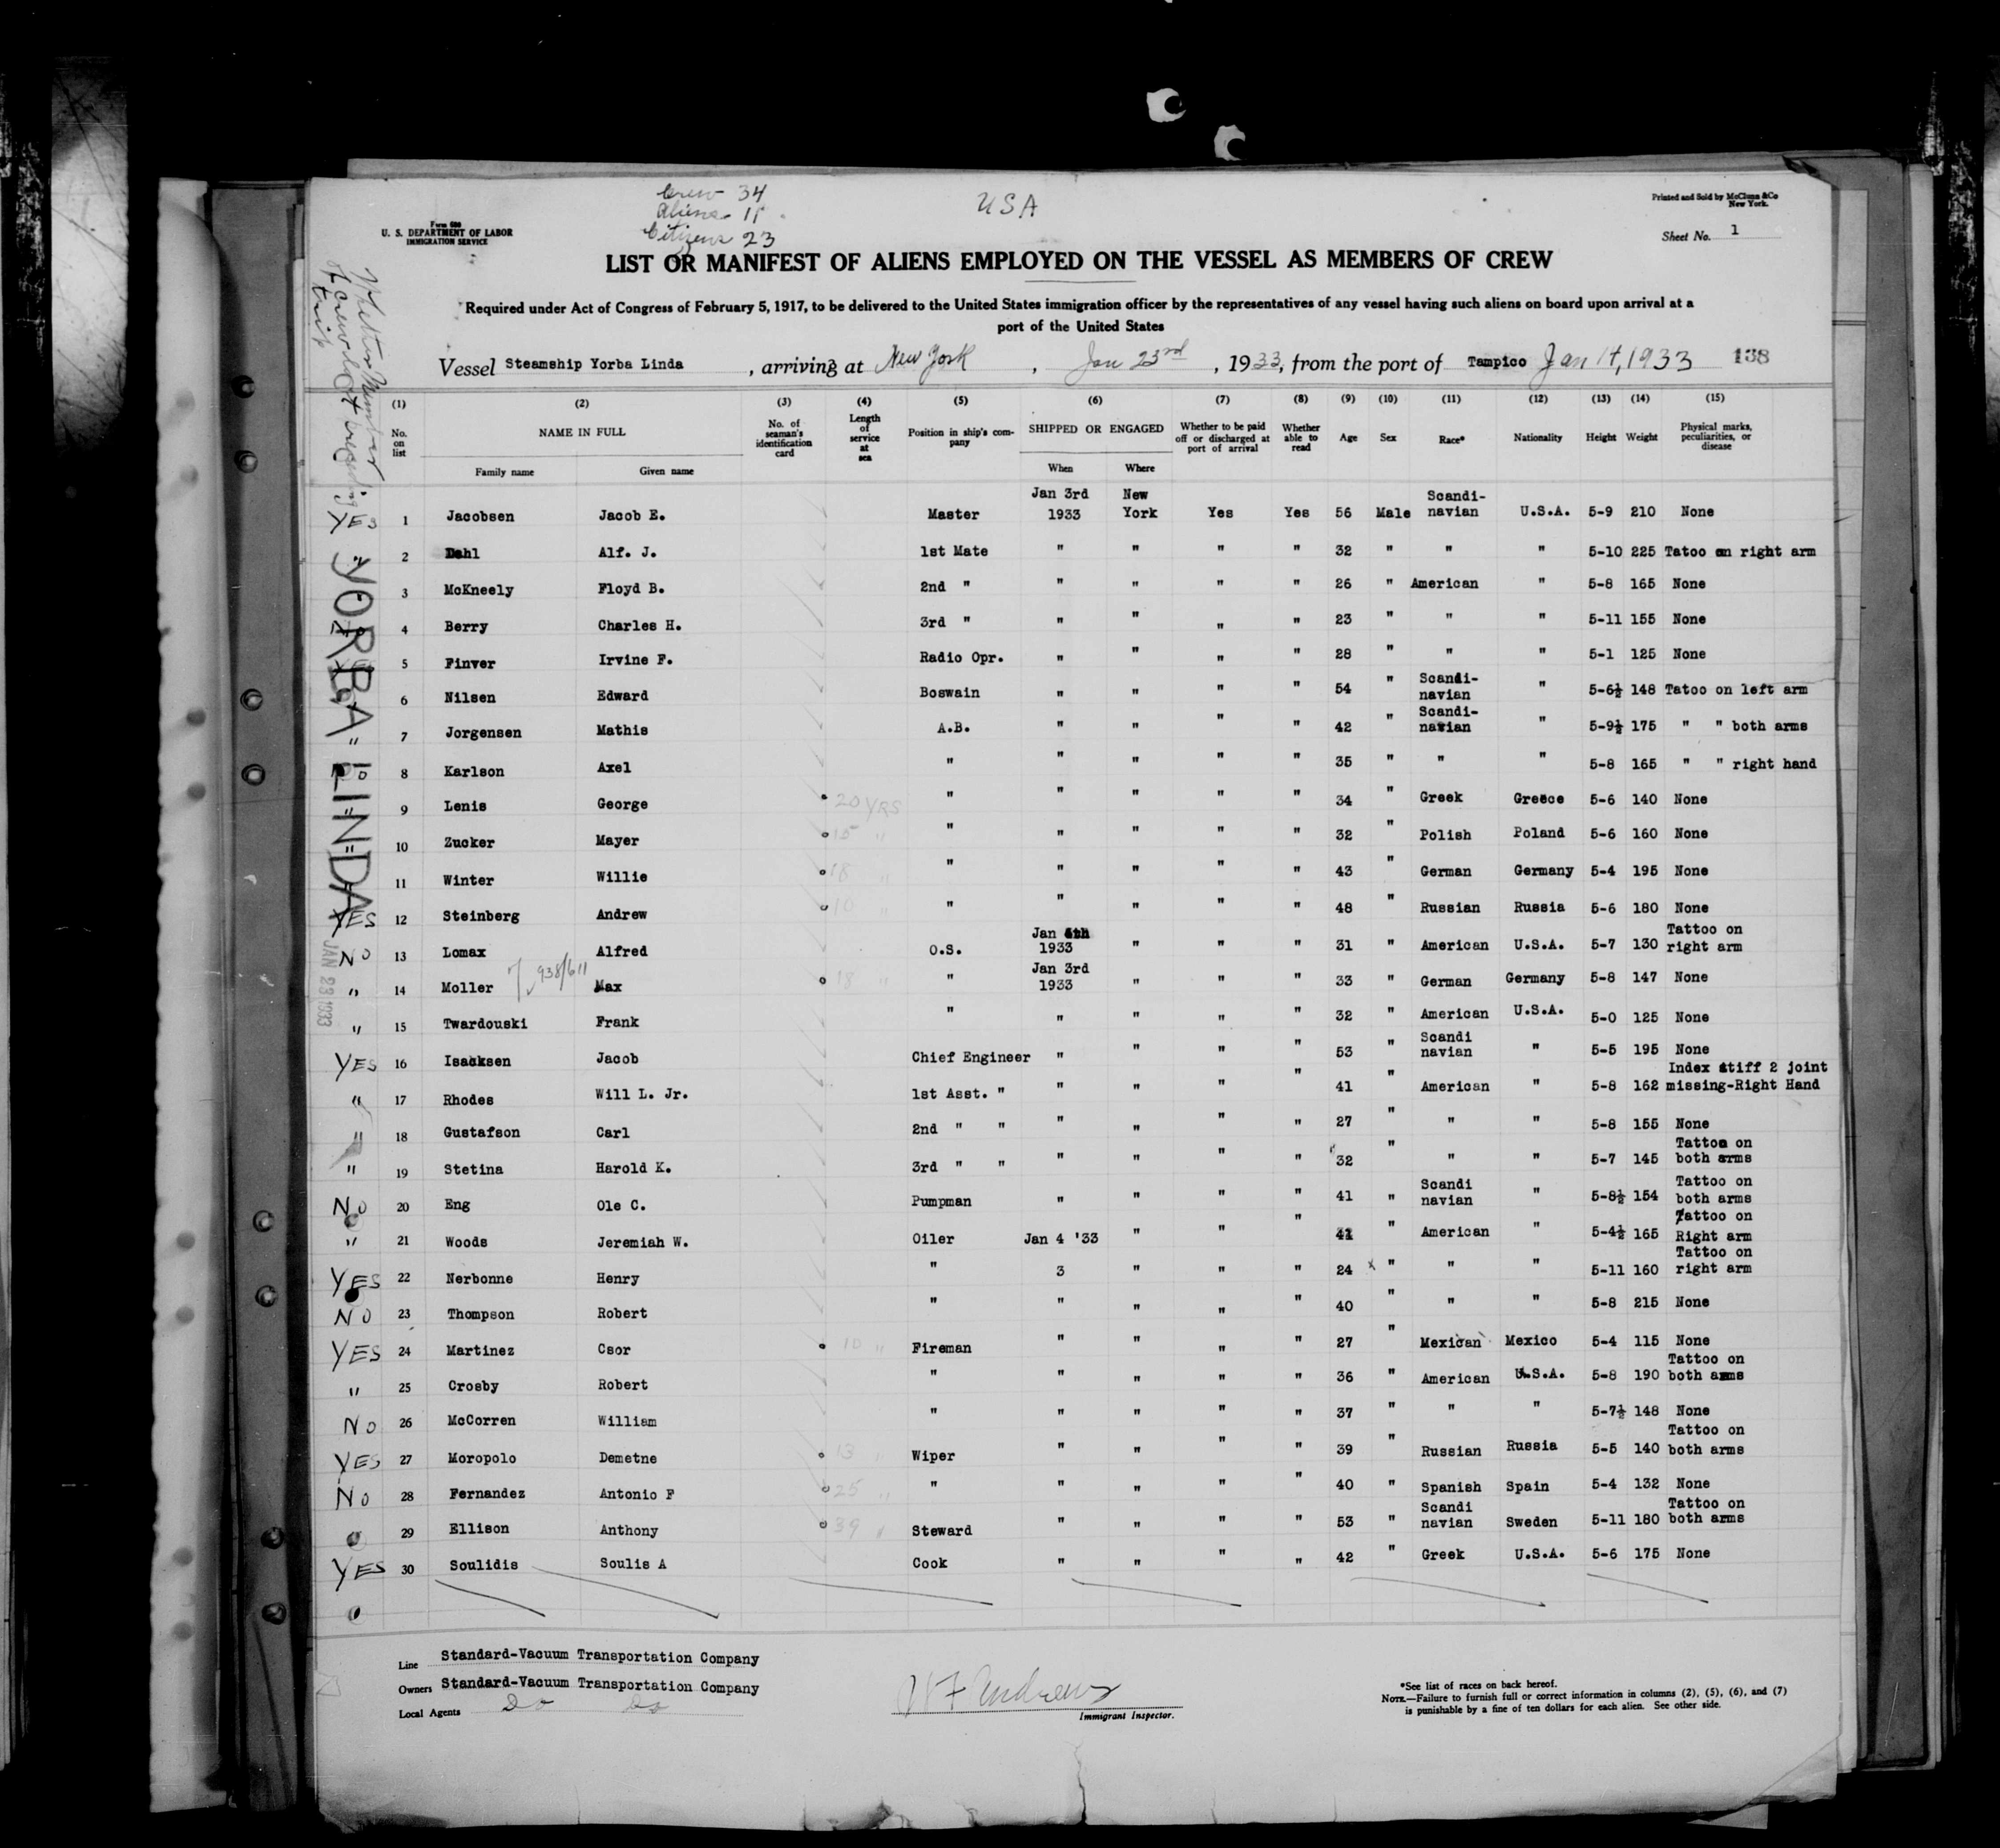 Crew 34
Aliens 11
Citizens 23
USA
Printed and Sold by McClunn & Co
New York.
Form 680
U. S. DEPARTMENT OF LABOR
IMMIGRATION SERVICE
Sheet No. 1
LIST OR MANIFEST OF ALIENS EMPLOYED ON THE VESSEL AS MEMBERS OF CREW
Required under Act of Congress of February 5, 1917, to be delivered to the United States immigration officer by the representatives of any vessel having such aliens on board upon arrival at a
port of the United States
Vessel Steamship Yorba Linda , arriving at New York , Jan 23rd , 1933, from the port of Tampico Jan 14, 1933 138
Whether Member of crew last preceding trip
YORBA LINDA
JAN 23 1933
(1) (2) (3) (4) (5) (6) (7) (8) (9) (10) (11) (12) (13) (14) (15)
No. on list NAME IN FULL Family name Given name No. of seaman's identification card Length of service at sea Position in ship's company SHIPPED OR ENGAGED When Where Whether to be paid off or discharged at port of arrival Whether able to read Age Sex Race* Nationality Height Weight Physical marks, peculiarities, or disease
YES 1 Jacobsen Jacob E. Master Jan 3rd 1933 New York Yes Yes 56 Male Scandi-navian U.S.A. 5-9 210 None
" 2 Dahl Alf. J. 1st Mate " " " " 32 " " " 5-10 225 Tatoo on right arm
3 McKneely Floyd B. 2nd " " " " " 26 " American " 5-8 165 None
4 Berry Charles H. 3rd " " " " " 23 " " " 5-11 155 None
5 Finver Irvine F. Radio Opr. " " " " 28 " " " 5-1 125 None
6 Nilsen Edward Boswain " " " " 54 " Scandi-navian " 5-6½ 148 Tatoo on left arm
" 7 Jorgensen Mathis A.B. " " " " 42 " Scandi-navian " 5-9½ 175 " " both arms
8 Karlson Axel " " " " " 35 " " " 5-8 165 " " right hand
9 Lenis George 20 YRS " " " " " 34 " Greek Greece 5-6 140 None
10 Zucker Mayer 15 " " " " " " 32 " Polish Poland 5-6 160 None
11 Winter Willie 18 " " " " " " 43 " German Germany 5-4 195 None
YES 12 Steinberg Andrew 10 " " " " " " 48 " Russian Russia 5-6 180 None
NO 13 Lomax Alfred O.S. Jan 4th 1933 " " " 31 " American U.S.A. 5-7 130 Tattoo on right arm
" 14 Moller 938/611 Max 18 " " Jan 3rd 1933 " " " 33 " German Germany 5-8 147 None
" 15 Twardouski Frank " " " " " 32 " American U.S.A. 5-0 125 None
YES 16 Isacksen Jacob Chief Engineer " " " " 53 " Scandi navian " 5-5 195 None
" 17 Rhodes Will L. Jr. 1st Asst. " " " " " 41 " American " 5-8 162 Index stiff 2 joint missing-Right Hand
" 18 Gustafson Carl 2nd " " " " " " 27 " " " 5-8 155 None
" 19 Stetina Harold K. 3rd " " " " " " 32 " " " 5-7 145 Tattoo on both arms
NO 20 Eng Ole C. Pumpman " " " " 41 " Scandi navian " 5-8½ 154 Tattoo on both arms
" 21 Woods Jeremiah W. Oiler Jan 4 '33 " " " 41 " American " 5-4½ 165 Tattoo on Right arm
YES 22 Nerbonne Henry " 3 " " " 24 x " " " 5-11 160 Tattoo on right arm
NO 23 Thompson Robert " " " " " 40 " " " 5-8 215 None
YES 24 Martinez Csor 10 " Fireman " " " " 27 " Mexican Mexico 5-4 115 None
" 25 Crosby Robert " " " " " 36 " American U.S.A. 5-8 190 Tattoo on both arms
NO 26 McCorren William " " " " " 37 " " " 5-7½ 148 None
YES 27 Moropolo Demetne 13 " Wiper " " " " 39 " Russian Russia 5-5 140 Tattoo on both arms
NO 28 Fernandez Antonio F 25 " " " " " " 40 " Spanish Spain 5-4 132 None
29 Ellison Anthony 39 " Steward " " " " 53 " Scandi navian Sweden 5-11 180 Tattoo on both arms
YES 30 Soulidis Soulis A Cook " " " " 42 " Greek U.S.A. 5-6 175 None
Line Standard-Vacuum Transportation Company
Owners Standard-Vacuum Transportation Company
Local Agents Do Do
W F Andrews
Immigrant Inspector.
*See list of races on back hereof.
NOTE.—Failure to furnish full or correct information in columns (2), (5), (6), and (7)
is punishable by a fine of ten dollars for each alien. See other side.